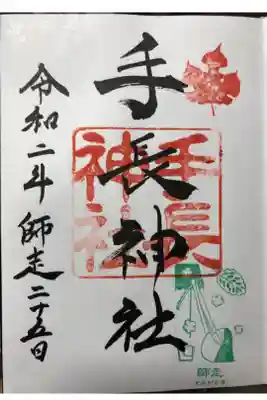 手長神社
手長
神社
令和二年師走二十五日
師走